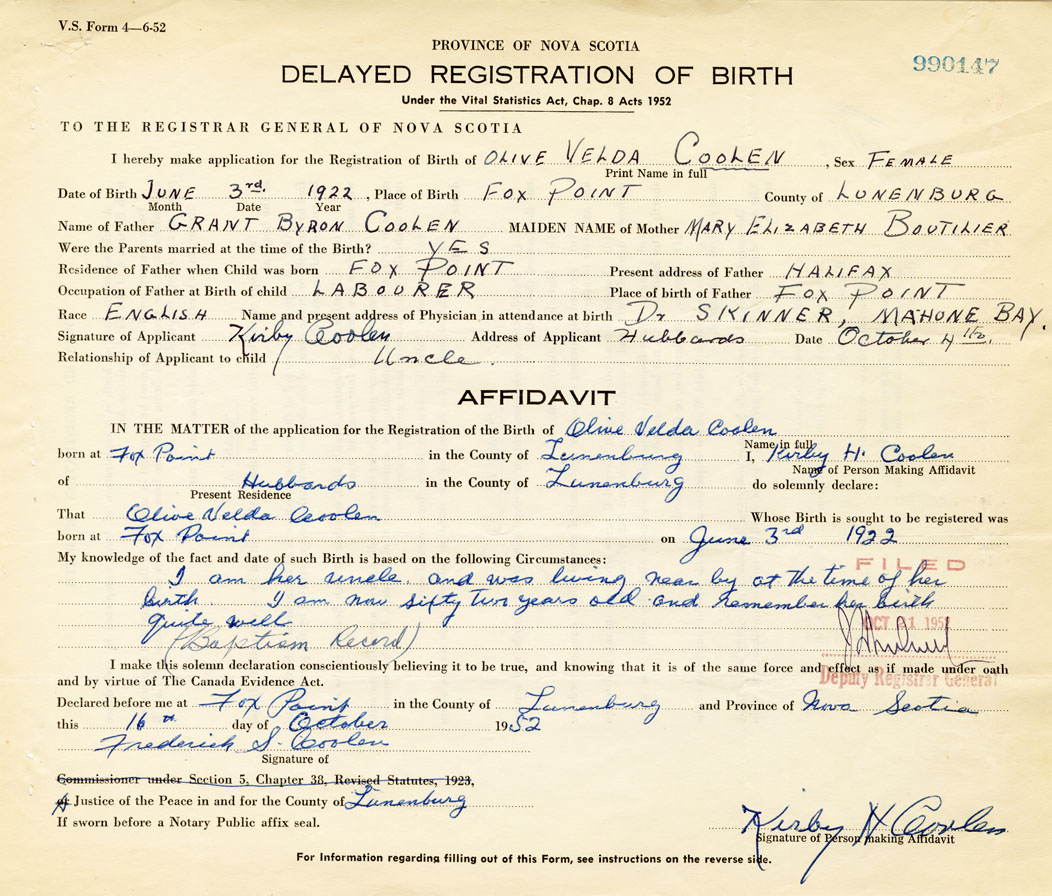 V.S. Form 4—6-52
PROVINCE OF NOVA SCOTIA
990147
DELAYED REGISTRATION OF BIRTH
Under the Vital Statistics Act, Chap. 8 Acts 1952
TO THE REGISTRAR GENERAL OF NOVA SCOTIA
I hereby make application for the Registration of Birth of OLIVE VELDA COOLEN, Sex FEMALE
Print Name in full
Date of Birth JUNE 3rd. 1922, Place of Birth FOX POINT County of LUNENBURG
Month Date Year
Name of Father GRANT BYRON COOLEN MAIDEN NAME of Mother MARY ELIZABETH BOUTILIER
Were the Parents married at the time of the Birth? YES
Residence of Father when Child was born FOX POINT Present address of Father HALIFAX
Occupation of Father at Birth of child LABOURER Place of birth of Father FOX POINT
Race ENGLISH Name and present address of Physician in attendance at birth Dr SKINNER, MAHONE BAY.
Signature of Applicant Kirby Coolen Address of Applicant Hubbards Date October 4
Relationship of Applicant to child Uncle.
AFFIDAVIT
IN THE MATTER of the application for the Registration of the Birth of Olive Velda Coolen
Name in full
born at Fox Point in the County of Lunenburg I, Kirby H. Coolen
Name of Person Making Affidavit
of Hubbards in the County of Lunenburg do solemnly declare:
Present Residence
That Olive Velda Coolen Whose Birth is sought to be registered was
born at Fox Point on June 3rd 1922
My knowledge of the fact and date of such Birth is based on the following Circumstances:
FILED
I am her uncle and was living near by at the time of her
birth. I am now sixty two years old and remember her birth
quite well
OCT 21 1952
(Baptism Record)
I make this solemn declaration conscientiously believing it to be true, and knowing that it is of the same force and effect as if made under oath
and by virtue of The Canada Evidence Act.
Deputy Registrar General
Declared before me at Fox Point in the County of Lunenburg and Province of Nova Scotia
this 16th day of October 1952
Frederick S. Coolen
Signature of
Commissioner under Section 5, Chapter 38, Revised Statutes, 1923,
A Justice of the Peace in and for the County of Lunenburg
If sworn before a Notary Public affix seal.
Kirby H Coolen
Signature of Person making Affidavit
For Information regarding filling out of this Form, see instructions on the reverse side.